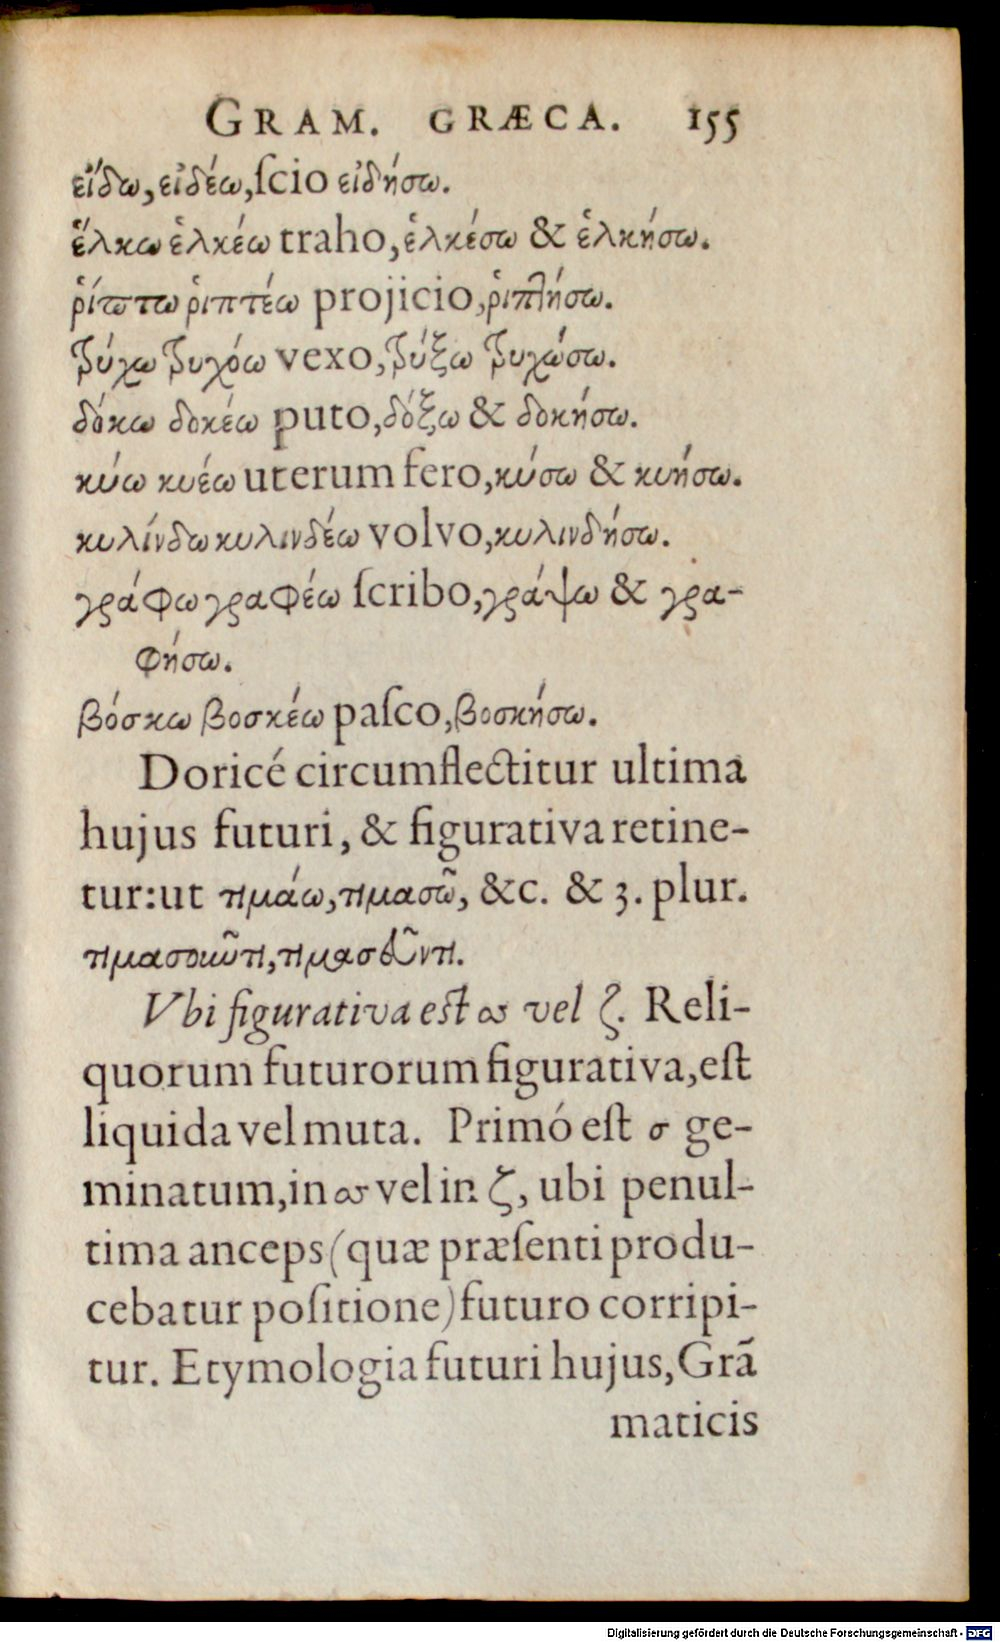 GRAM. GRÆCA. 155
εἴδω, εἰδέω, ſcio εἰδήσω.
ἕλκω ἑλκέω traho, ἑλκέσω & ἑλκήσω.
ῥίπτω ῥιπτέω projicio, ῥιπτήσω.
τρύχω τρυχόω vexo, τρύξω τρυχώσω.
δόκω δοκέω puto, δόξω & δοκήσω.
κύω κυέω uterum fero, κύσω & κυήσω.
κυλίνδω κυλινδέω volvo, κυλινδήσω.
γράφω γραφέω ſcribo, γράψω & γρα-
φήσω.
βόσκω βοσκέω paſco, βοσκήσω.
Doricé circumflectitur ultima
hujus futuri, & figurativa retine-
tur: ut τιμάω, τιμασῶ, &c. & 3. plur.
τιμασοιῶτι, τιμασεῦντι.
Vbi figurativa eſt σσ vel ζ. Reli-
quorum futurorum figurativa, eſt
liquida vel muta. Primó eſt σ ge-
minatum, in σσ vel in ζ, ubi penul-
tima anceps (quæ præſenti produ-
cebatur poſitione) futuro corripi-
tur. Etymologia futuri hujus, Grã
maticis
Digitalisierung gefördert durch die Deutsche Forschungsgemeinschaft - DFG